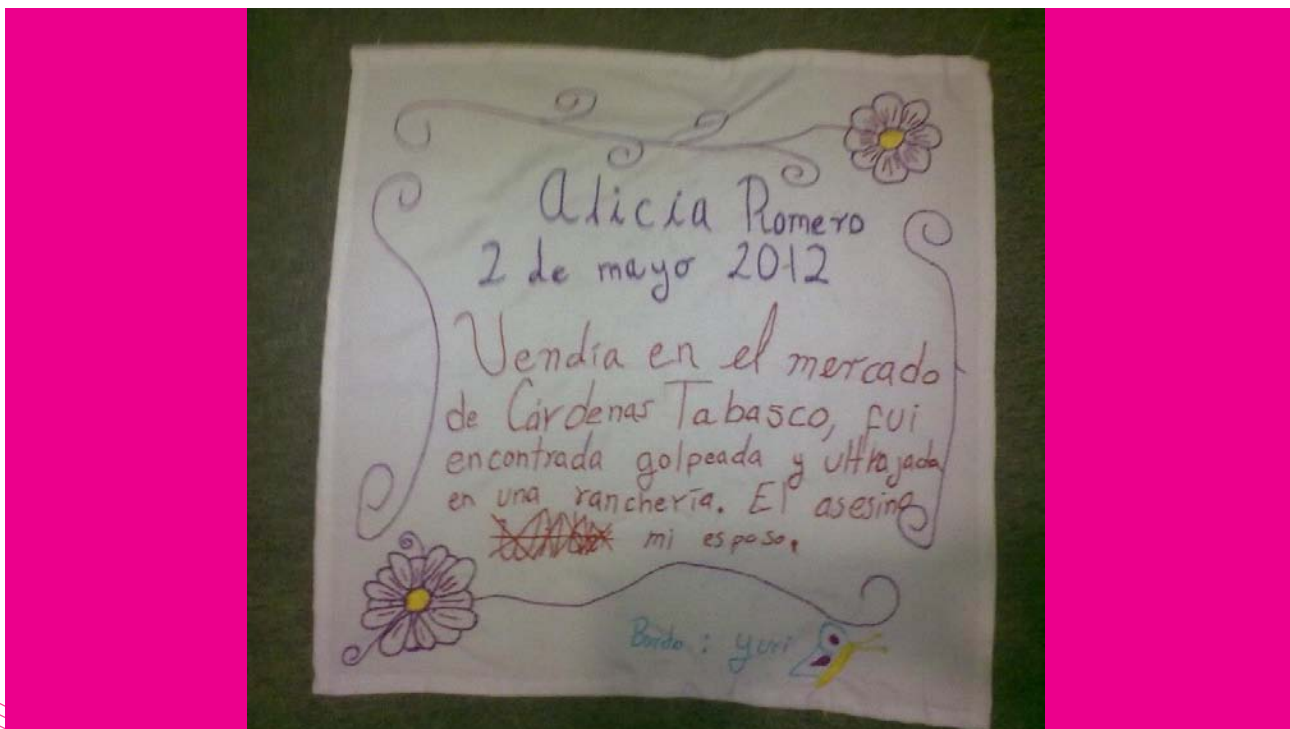 Alicia Romero
2 de mayo 2012
Vendía en el mercado
de Cárdenas Tabasco, fui
encontrada golpeada y ultrajada
en una ranchería. El asesino
mi esposo.
Bordo: yuri